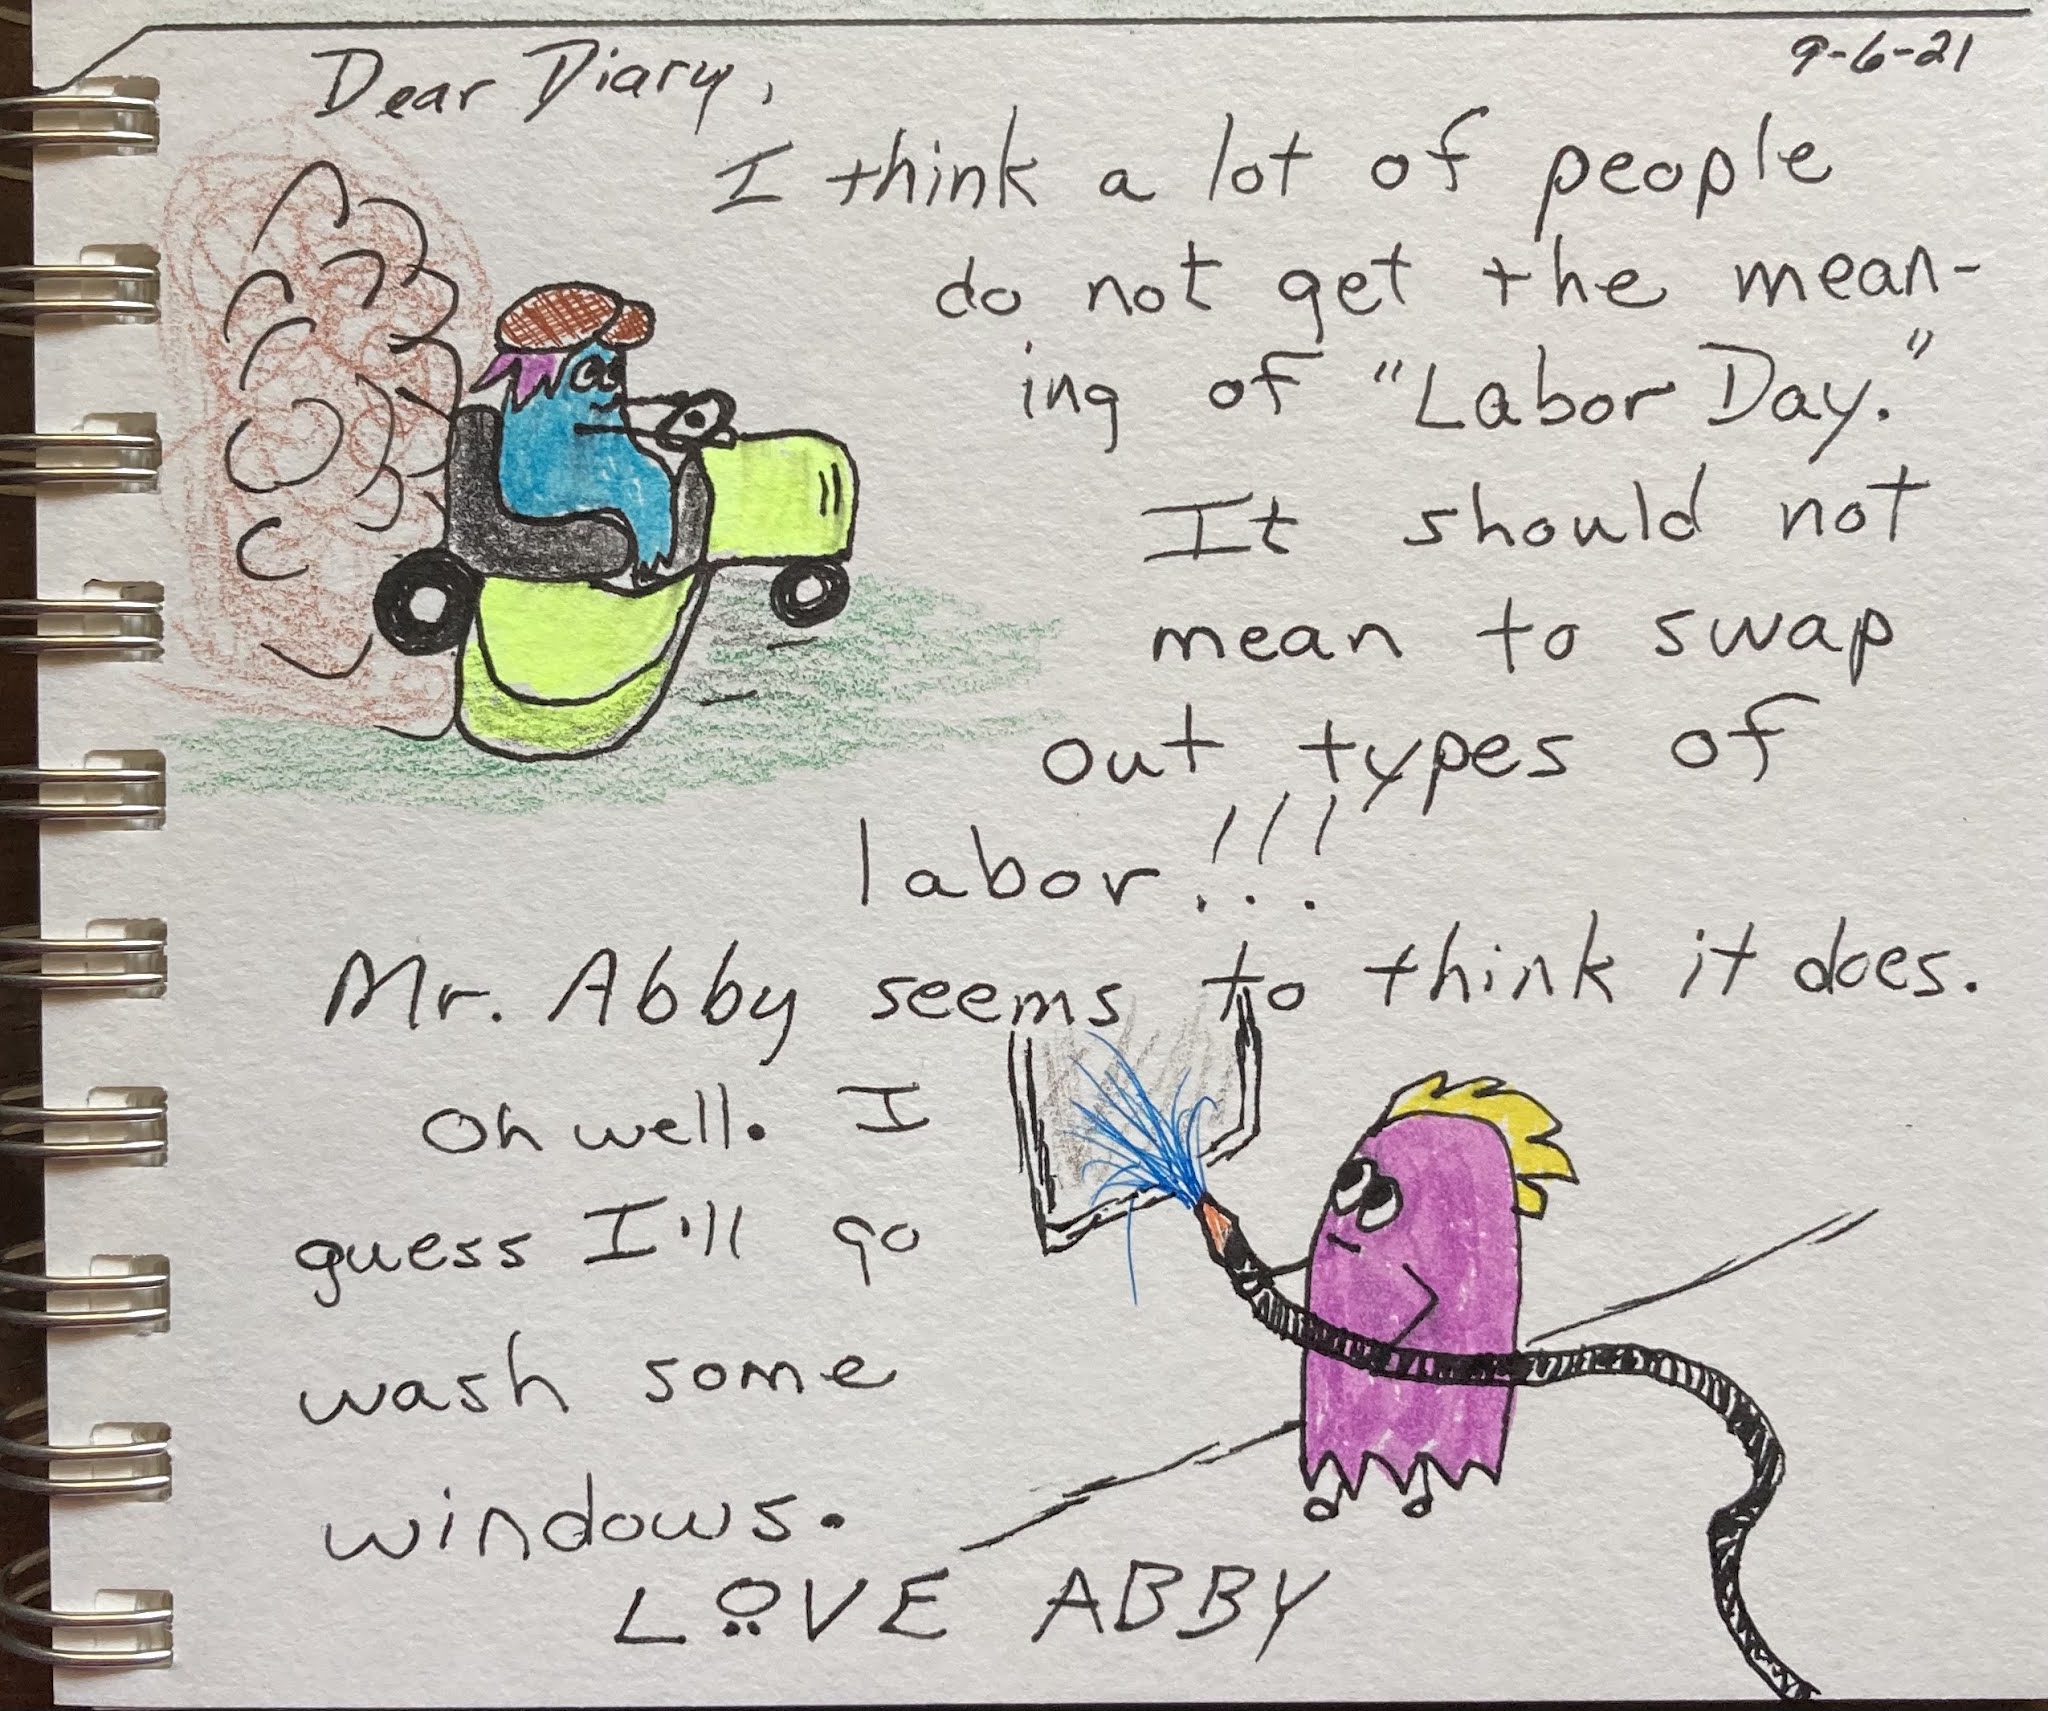 9-6-21
Dear Diary,
I think a lot of people
do not get the mean-
ing of "Labor Day."
It should not
mean to swap
out types of
labor!!!
Mr. Abby seems to think it does.
Oh well. I
guess I'll go
wash some
windows.
LOVE ABBY